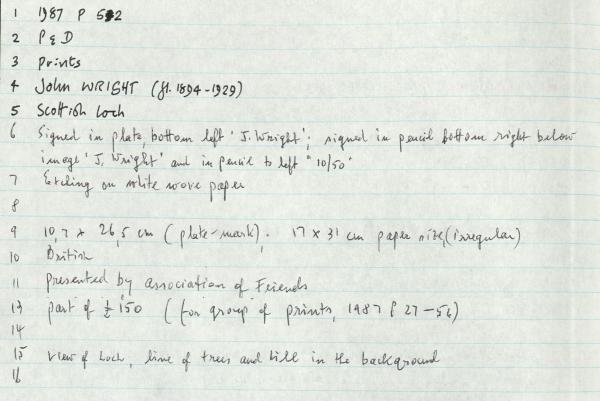 1 1987 P 52
2 P & D
3 Prints
4 John WRIGHT (fl. 1894-1929)
5 Scottish Loch
6 Signed in plate, bottom left 'J. Wright'; signed in pencil bottom right below
image 'J. Wright' and in pencil to left "10/50"
7 Etching on white wove paper
8
9 10,7 x 26,5 cm (plate-mark). 17 x 31 cm paper size (irregular)
10 British
11 presented by association of Friends
13 part of £150 (for group of prints, 1987 P 27-54)
14
15 view of Loch, line of trees and hill in the background
16